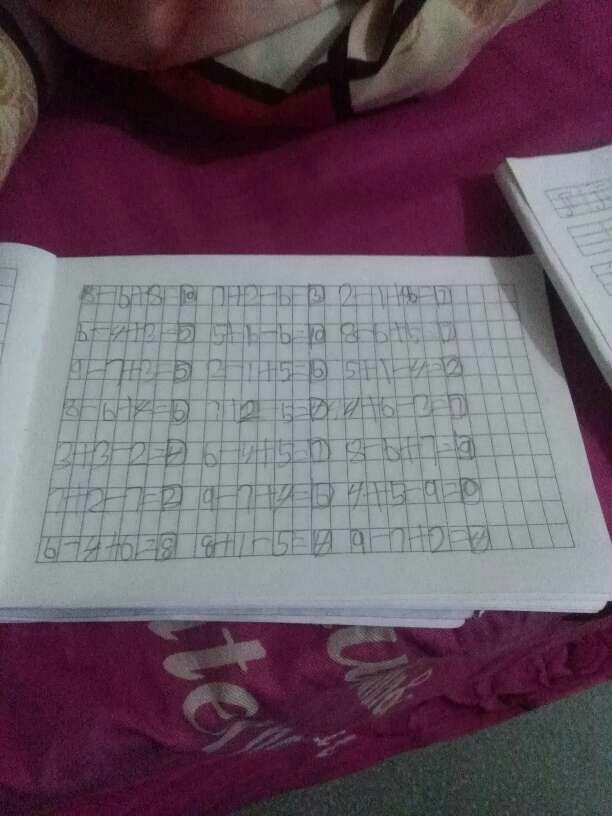 8-6+8=10 7+2-6=3 2-1+6=7
6-4+3=5 5+6-6=10 8-6+5=7
9-7+3=5 2-1+5=6 5+1-4=2
8-6+4=6 7+2 5=4 4+6-3=7
3+3-2=4 6-4+5=7 8-6+7=9
7+2-7=2 9-7+4=6 4+5-9=0
6-4+6=8 8+1-5=4 9-7+2=4